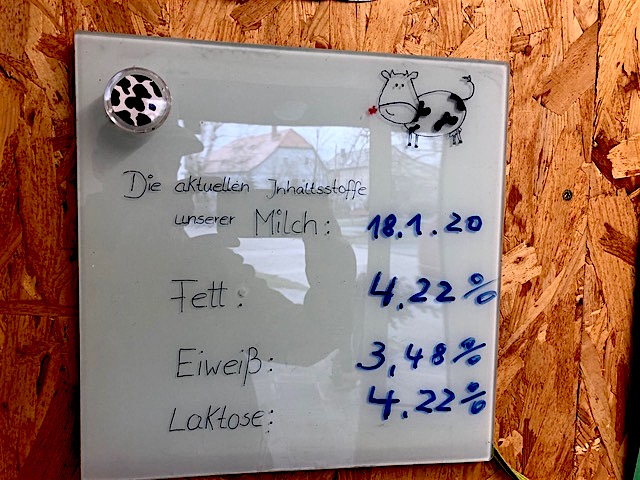 Die aktuellen Inhaltsstoffe
unserer Milch: 18.1.20
Fett: 4.22%
Eiweiß: 3,48%
Laktose: 4.22%